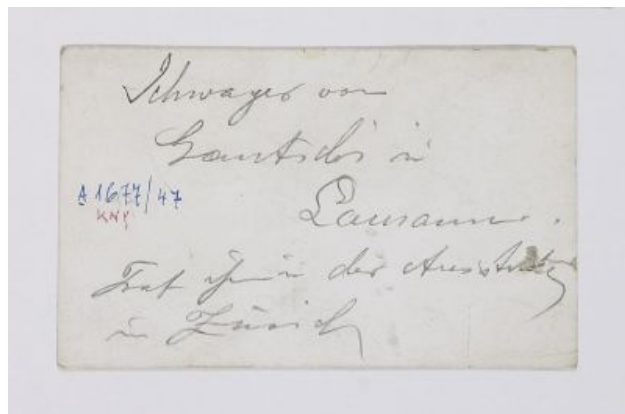 Schwager von
Gantschi in
Lausanne.
A 1677/47
KNP
Traf ihn in der Ausstellung
in Zürich